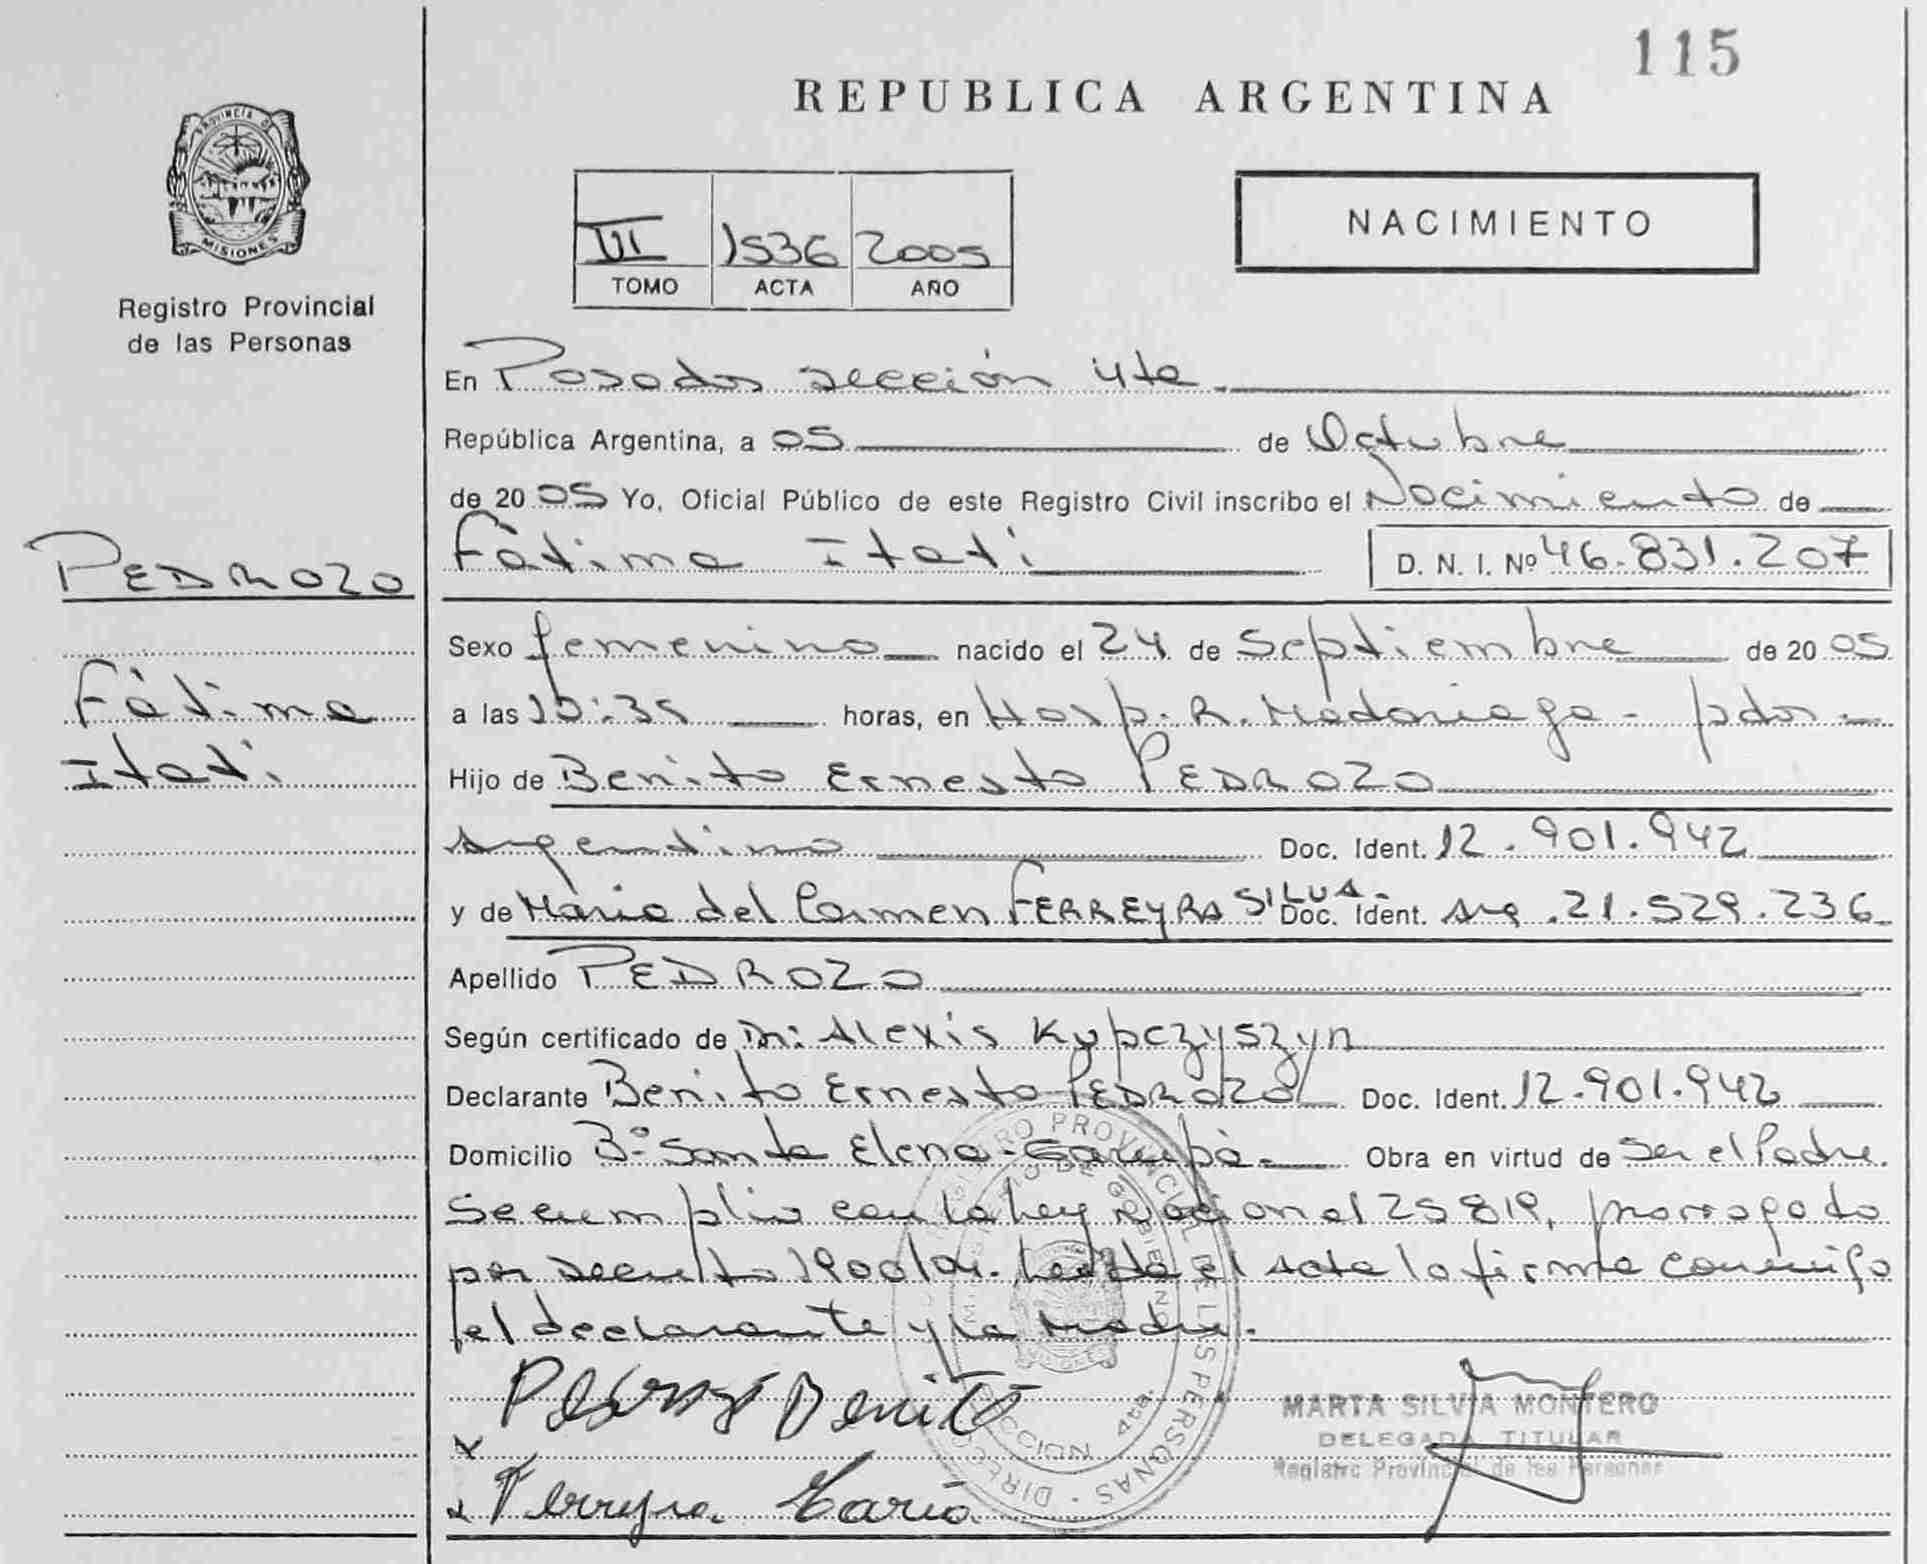 115
REPUBLICA ARGENTINA
PROVINCIA DE
MISIONES
Registro Provincial
de las Personas
III 1536 2005
TOMO ACTA AÑO
NACIMIENTO
En Posadas sección 4ta
República Argentina, a 05 de Octubre
de 2005 Yo, Oficial Público de este Registro Civil inscribo el Nacimiento de
PEDROZO
Fátima Itatí D. N. I. Nº 46.831.207
Sexo femenino nacido el 24 de Septiembre de 2005
Fátima
Itatí
a las 10:35 horas, en Hosp. R. Madariaga - pdas -
Hijo de Benito Ernesto PEDROZO
Argentino Doc. Ident. 12.901.942
y de María del Carmen FERREYRA SILVA - Doc. Ident. Arg. 21.529.236
Apellido PEDROZO
Según certificado de Dr: Alexis Kupczyszyn
Declarante Benito Ernesto PEDROZO Doc. Ident. 12.901.942
Domicilio Bº Santa Elena - Garupá - Obra en virtud de Ser el Padre.
Se cumplio con la Ley Nacional 25819, prorrogado
por decreto 1900/04. Leída el acta la firma conmigo
el declarante y la Madre.
Pedrozo Benito
MARTA SILVIA MONTERO
DELEGADA TITULAR
Registro Provincial de las Personas
x
x Ferreyra María
REGISTRO PROVINCIAL DE LAS PERSONAS
MINISTERIO DE GOBIERNO
SECCION 4ta.